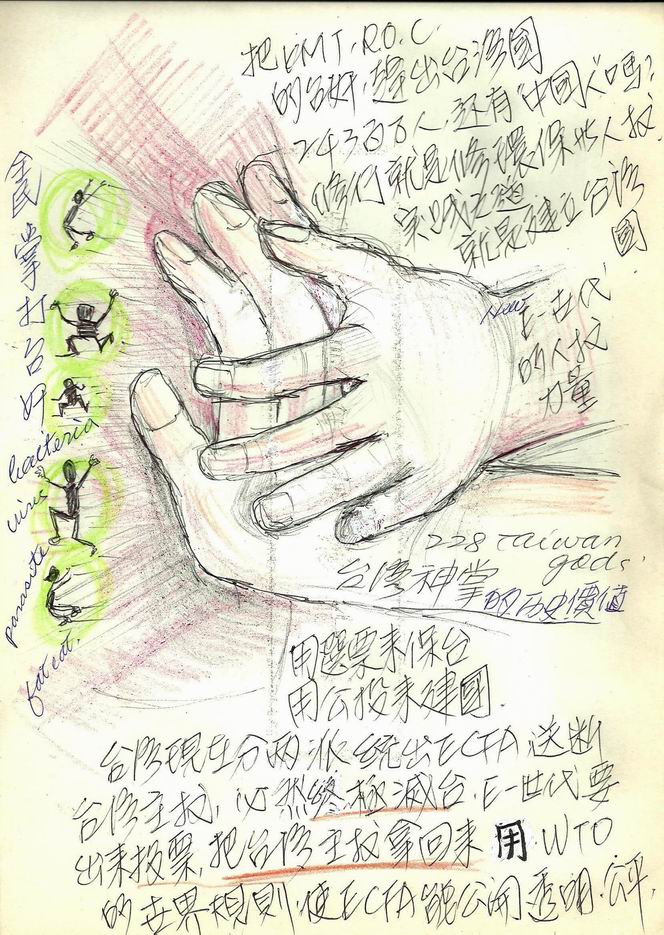 把KMT.R.O.C.
的台奸,趕出台灣國
2430百万人,还有"中國人"嗎?
修行就是修環保些人权
实践之道
就是建立台湾
國.
New
E-世代
的人权
力量
全民掌打台奸
bacteria
virus
parasite
fat cat.
228 Taiwan
gods.
台湾神掌的历史價值
用選票来保台
用公投来建國.
台湾現在分两派 统出ECFA,送断
台湾主权,必然終極滅台.E-世代要
出来投票,把台湾主权拿回来 用 WTO
的世界規則,使ECFA能公開透明.公平.